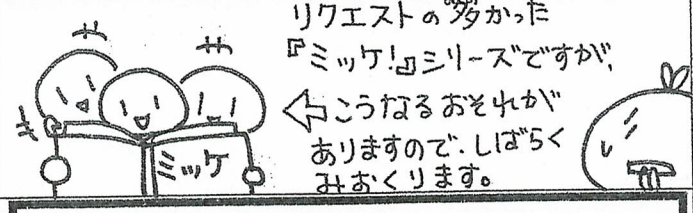 リクエストの多かった
『ミッケ!』シリーズですが、
⇦こうなるおそれが
ありますので、しばらく
みおくります。
ミッケ